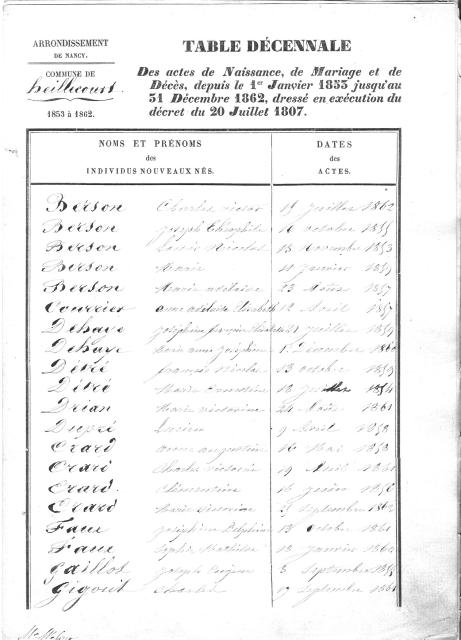 ARRONDISSEMENT
DE NANCY.
COMMUNE DE
heillecourt
1853 à 1862.
TABLE DÉCENNALE
Des actes de Naissance, de Mariage et de
Décès, depuis le 1er Janvier 1853 jusqu'au
31 Décembre 1862, dressé en exécution du
décret du 20 Juillet 1807.
NOMS ET PRÉNOMS
des
INDIVIDUS NOUVEAUX NÉS.
DATES
des
ACTES.
Berson Charles victor juillet 1862
Berson joseph théophile 16 octobre 1855
Berson Nicolas 13 Novembre 1853
Berson Marie janvier 1859
Berson Marie adelaïde 23 Mars 1857
Courrier anne adelaïde Elisabeth 12 Avril 1857
Dehaye joséphine juillet 1859
Dehaye anne joséphine Décembre 1860
Détré françois Nicolas 13 octobre 1859
Détré Marie 12 1854
Drian Marie victorine 24 Mars 1861
Dupré Lucien 9 Avril 1858
Erard augustine 16 Mai 1853
Erard Charles 19 Avril
Erard Clémentine 16 juin 1856
Erard Marie victorine septembre 1862
Faux joséphine Delphine 13 octobre 1861
Faux Sophie Mathilde 12 janvier 1860
Gaillot joseph Eugène 3 Septembre 1855
Gigout Charles 17 Septembre 1861